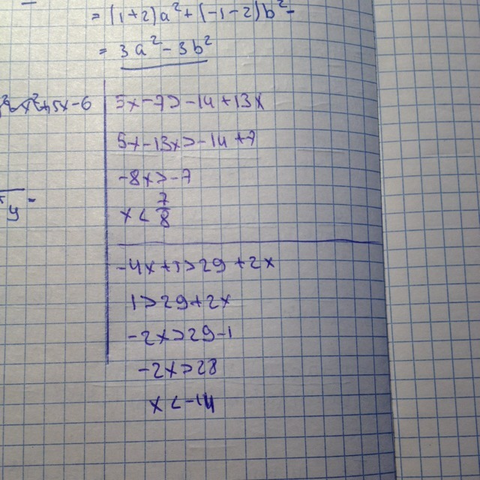 = (1+2)a²+(-1-2)b²-
= 3a²-3b²
5x-7>-14+13x
5x-13x>-14+7
-8x>-7
x < 7/8
-4x+5>29+2x
1>29+2x
-2x>29-1
-2x>28
x <-14